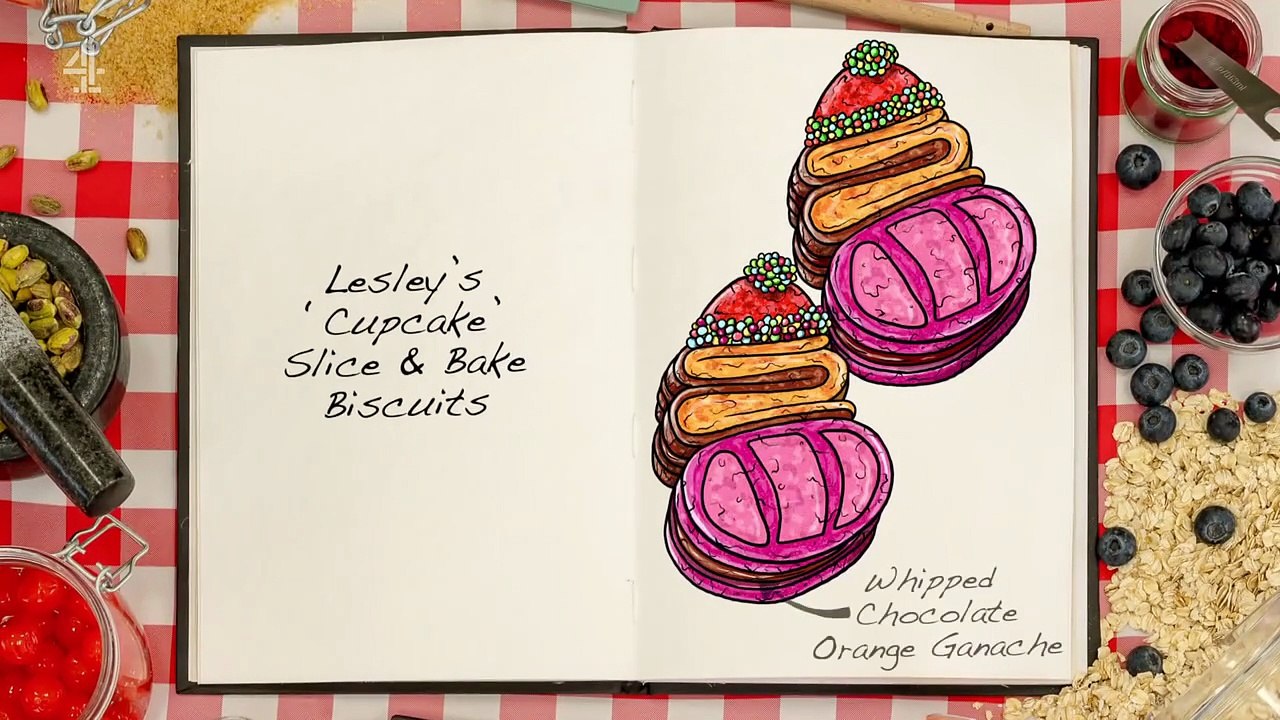 4
Lesley's
'Cupcake'
Slice & Bake
Biscuits
Whipped
Chocolate
Orange Ganache